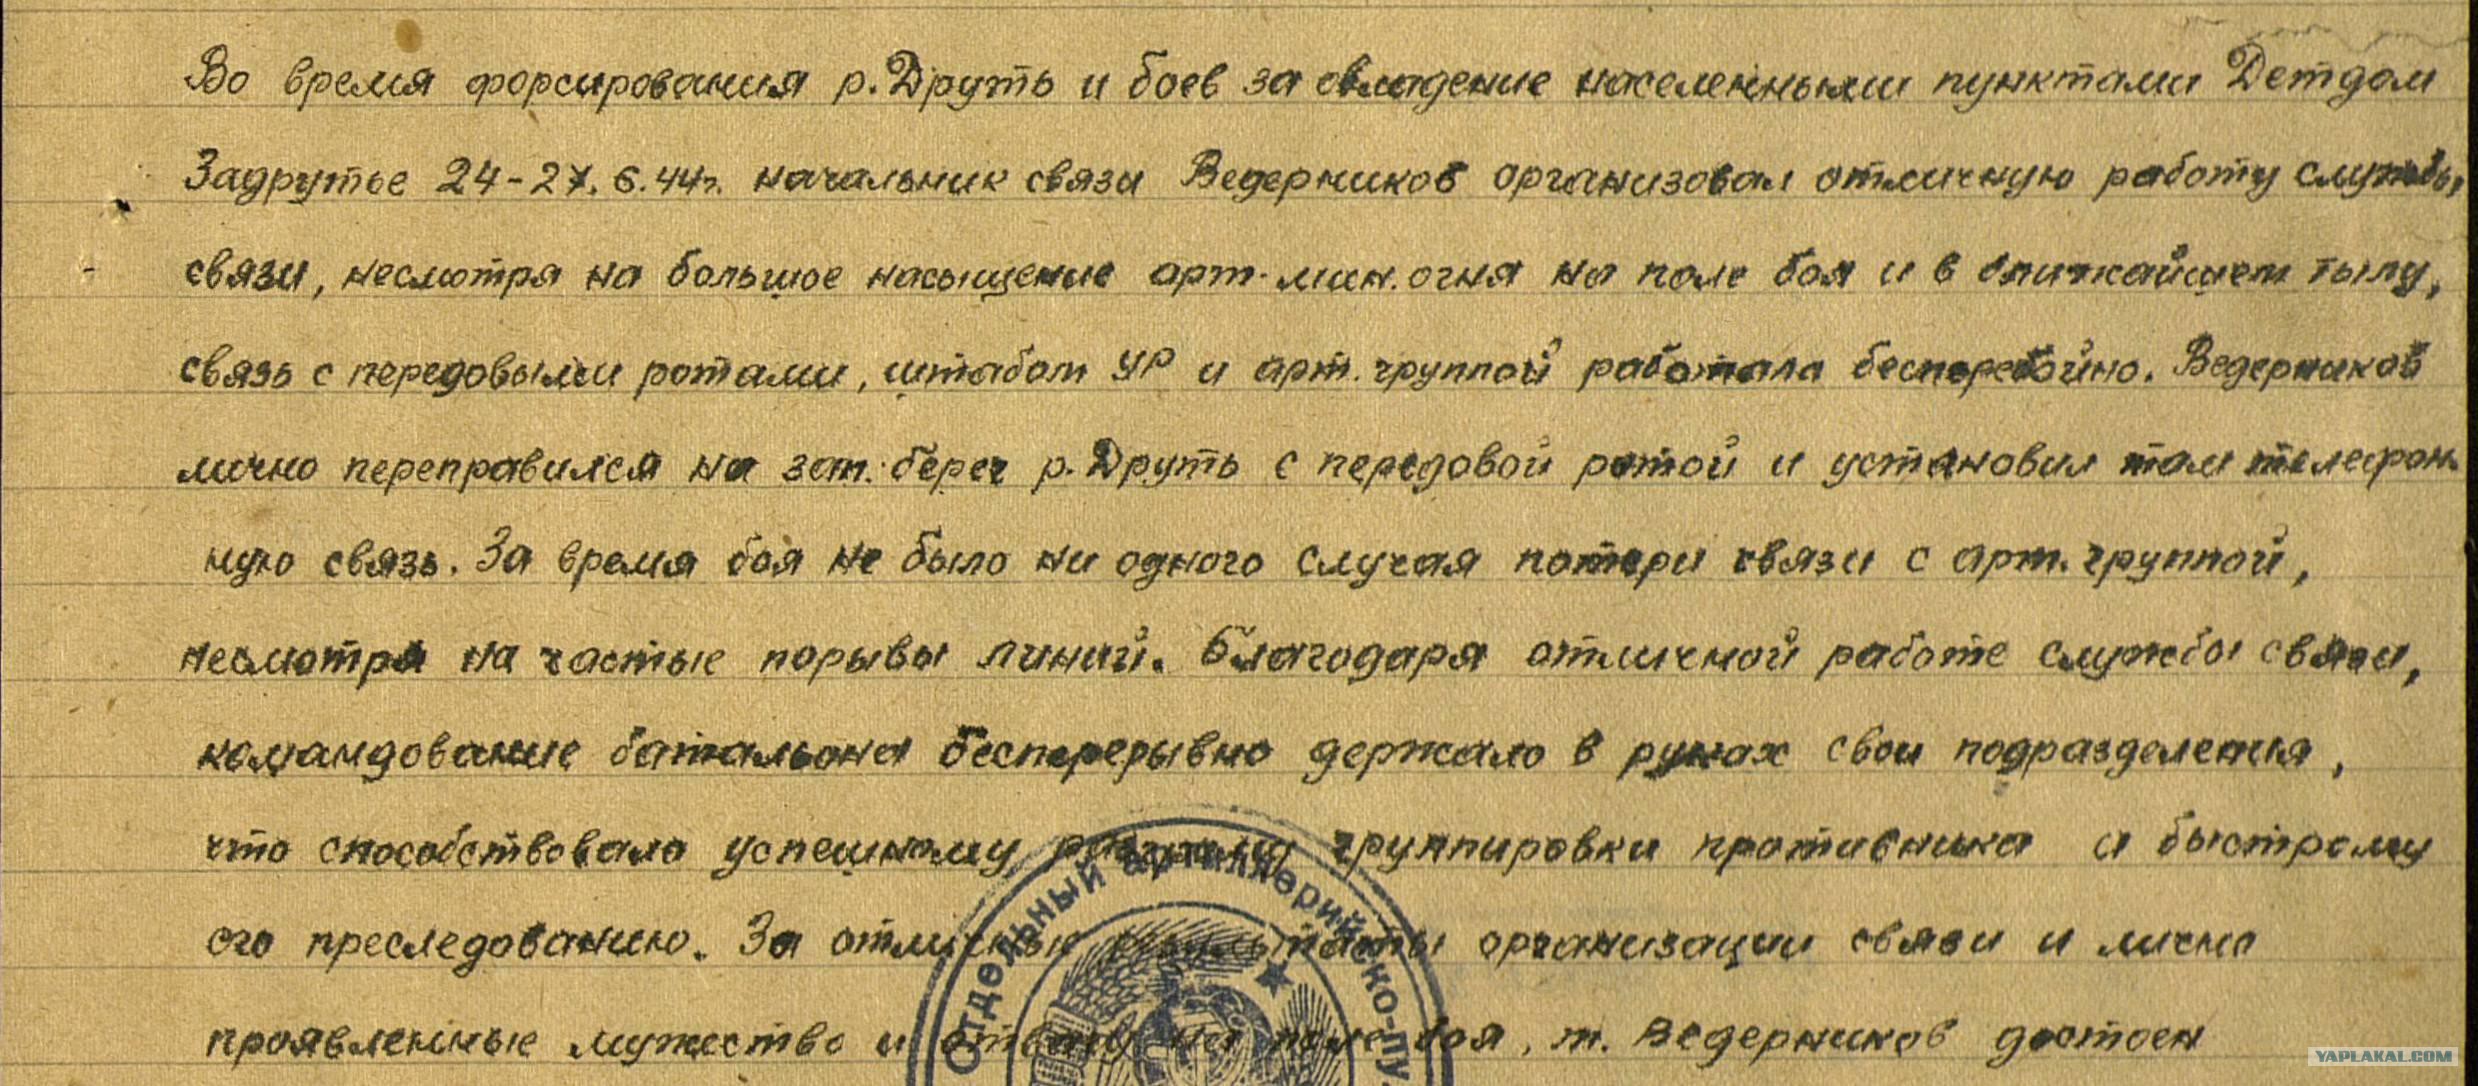 Во время форсирования р. Друть и боев за овладение населенными пунктами Детдом
Задрутье 24-27.6.44г. начальник связи Ведерников организовал отличную работу службы
связи, несмотря на большое насыщение арт-мин. огня на поле боя и в ближайшем тылу,
связь с передовыми ротами, штабом УР и арт. группой работала бесперебойно. Ведерников
лично переправился на зап. берег р. Друть с передовой ротой и установил там телефон-
ную связь. За время боя не было ни одного случая потери связи с арт. группой,
несмотря на частые порывы линий. Благодаря отличной работе службы связи,
командование батальона бесперерывно держало в руках свои подразделения,
что способствовало успешному разгрому группировки противника и быстрому
его преследованию. За отличные результаты организации связи и лично
проявленные мужество и отвагу на поле боя, т. Ведерников достоен
Отдельный артиллерийско-пу
YAPLAKAL.COM